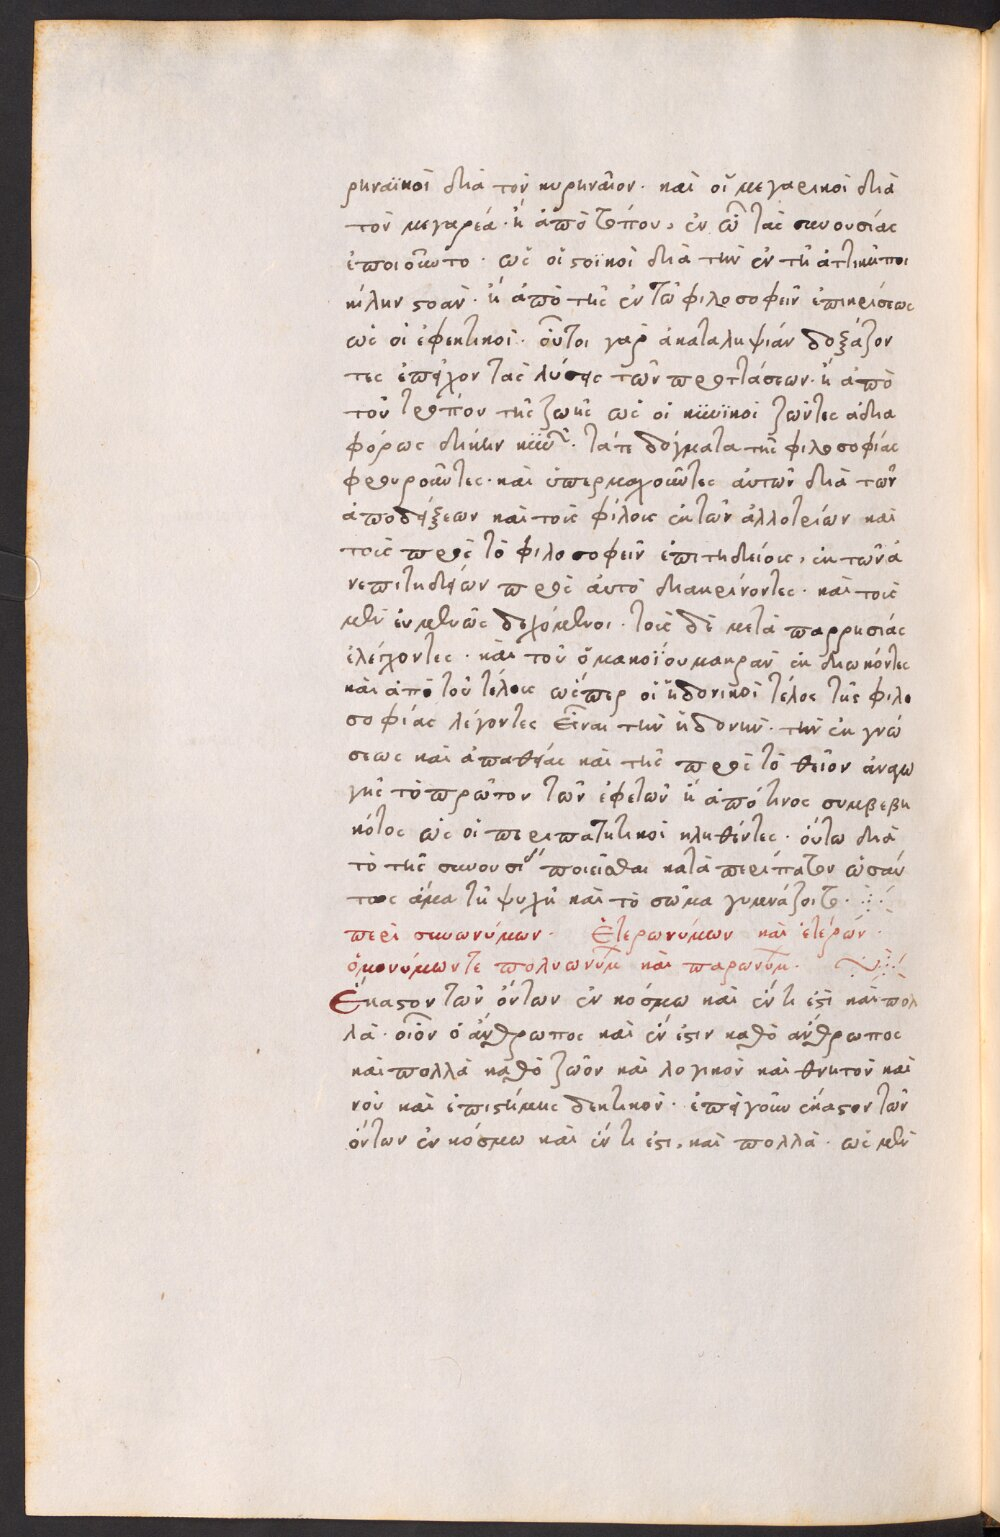 ρηναϊκοὶ διὰ τὸν κυρηναῖον· καὶ οἱ μεγαρικοὶ διὰ
τὸν μεγαρέα· ἢ ἀπὸ τόπου, ἐν ᾧ τὰς συνουσίας
ἐποιοῦντο· ὡς οἱ στοϊκοὶ διὰ τὴν ἐν τῇ ἀττικῇ ποι
κίλην στοάν· ἢ ἀπὸ τῆς ἐν τῷ φιλοσοφεῖν ἐπικρίσεως
ὡς οἱ ἐφεκτικοί· οὗτοι γὰρ ἀκαταληψίαν δοξάζον
τες ἐπεῖχον τὰς λύσεις τῶν προτάσεων· ἢ ἀπὸ
τοῦ τρόπου τῆς ζωῆς ὡς οἱ κυνϊκοὶ ζῶντες ἀδια
φόρως δίκην κυνῶν· τά τε δόγματα τῆς φιλοσοφίας
φρουροῦντες· καὶ ὑπερμαχοῦντες αὐτῶν διὰ τῶν
ἀποδείξεων καὶ τοὺς φίλους ἐκ τῶν ἀλλοτρίων καὶ
τοὺς πρὸς τὸ φιλοσοφεῖν ἐπιτηδείους, ἐκ τῶν ἀ
νεπιτηδείων πρὸς αὐτὸ διακρίνοντες· καὶ τοὺς
μὲν εὐμενῶς δεχόμενοι· τοὺς δὲ μετὰ παρρησίας
ἐλέγχοντες· καὶ τοῦ μακρὰν ἐκδιώκοντες
καὶ ἀπὸ τοῦ τέλους ὥσπερ οἱ ἡδονικοὶ τέλος τῆς φιλο
σοφίας λέγοντες εἶναι τὴν ἡδονήν· τὴν ἐκ γνώ
σεως καὶ ἀπαθείας καὶ τῆς πρὸς τὸ θεῖον ἀναγω
γῆς τὸ πρῶτον τῶν ἐφετῶν ἢ ἀπό τινος συμβεβη
κότος ὡς οἱ περιπατητικοὶ κληθέντες· οὕτω διὰ
τὸ τὴν συνουσίαν ποιεῖσθαι κατὰ περίπατον ὡσαύ
τως ἅμα τῇ ψυχῇ καὶ τὸ σῶμα γυμνάζοιτο·
περὶ συνωνύμων· ἑτερωνύμων καὶ ἑτέρων·
ὁμονύμων τε πολυωνύμων καὶ παρωνύμων·
Ἕκαστον τῶν ὄντων ἐν κόσμω καὶ ἕν τι ἐστὶ καὶ πολ
λὰ· οἷον ὁ ἄνθρωπος καὶ ἕν ἐστιν καθὸ ἄνθρωπος
καὶ πολλὰ καθὸ ζῶον καὶ λογικὸν καὶ θνητὸν καὶ
νοῦ καὶ ἐπιστήμης δεκτικόν· ἐπεὶ γοῦν ἕκαστον τῶν
ὄντων ἐν κόσμω καὶ ἕν τι ἐστι, καὶ πολλὰ· ὡς μὲν